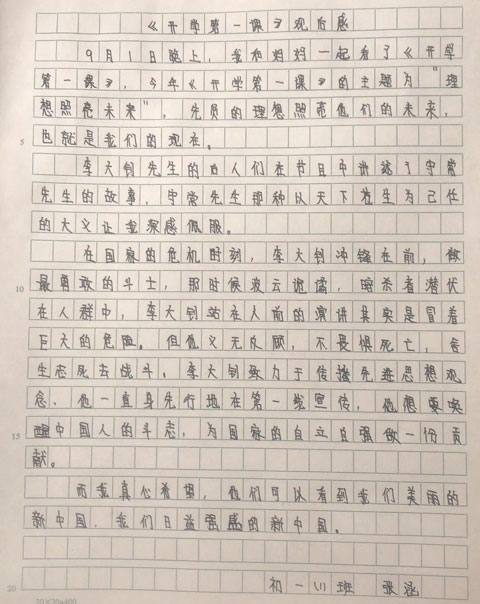 《开学第一课》观后感
9月1日晚上，我和妈妈一起看了《开学
第一课》，今年《开学第一课》的主题为“理
想照亮未来”，先员的理想照亮他们的未来，
5 也就是我们的现在。
李大钊先生的后人们在节目中讲述了守常
先生的故事，守常先生那种以天下苍生为己任
的大义让我深感佩服。
在国家的危机时刻，李大钊冲锋在前，做
10 最勇敢的斗士，那时候波云诡谲，暗杀者潜伏
在人群中，李大钊站在人前的演讲其实是冒着
巨大的危险。但他义无反顾，不畏惧死亡，舍
生忘死去战斗。李大钊致力于传播先进思想观
念，他一直身先行地在第一线宣传，他想要唤
15 醒中国人的斗志，为国家的自立自强做一份贡
献。
而我真心希望，他们可以看到我们美丽的
新中国，我们日益强盛的新中国。
20 初一（1）班 张涵
20×20=400